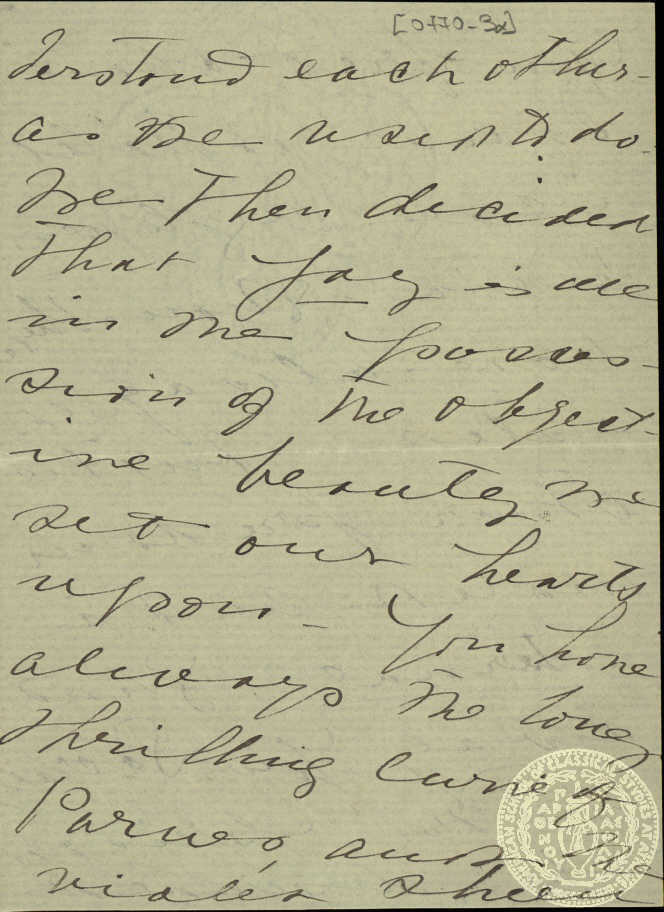 [0770-3a]
derstood each other -
as we used to do.
We then decided
that joy is all
in the posses-
sion of the object-
ive beauty we
set our hearts
upon - You have
always the long
thrilling curve of
Parnes, and the
violet sheen